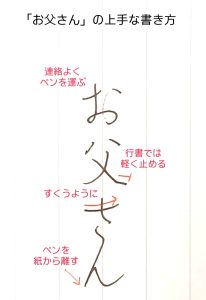 「お父さん」の上手な書き方
連絡よく
ペンを運ぶ
お父さん
行書では
軽く止める
すくうように
ペンを
紙から離す